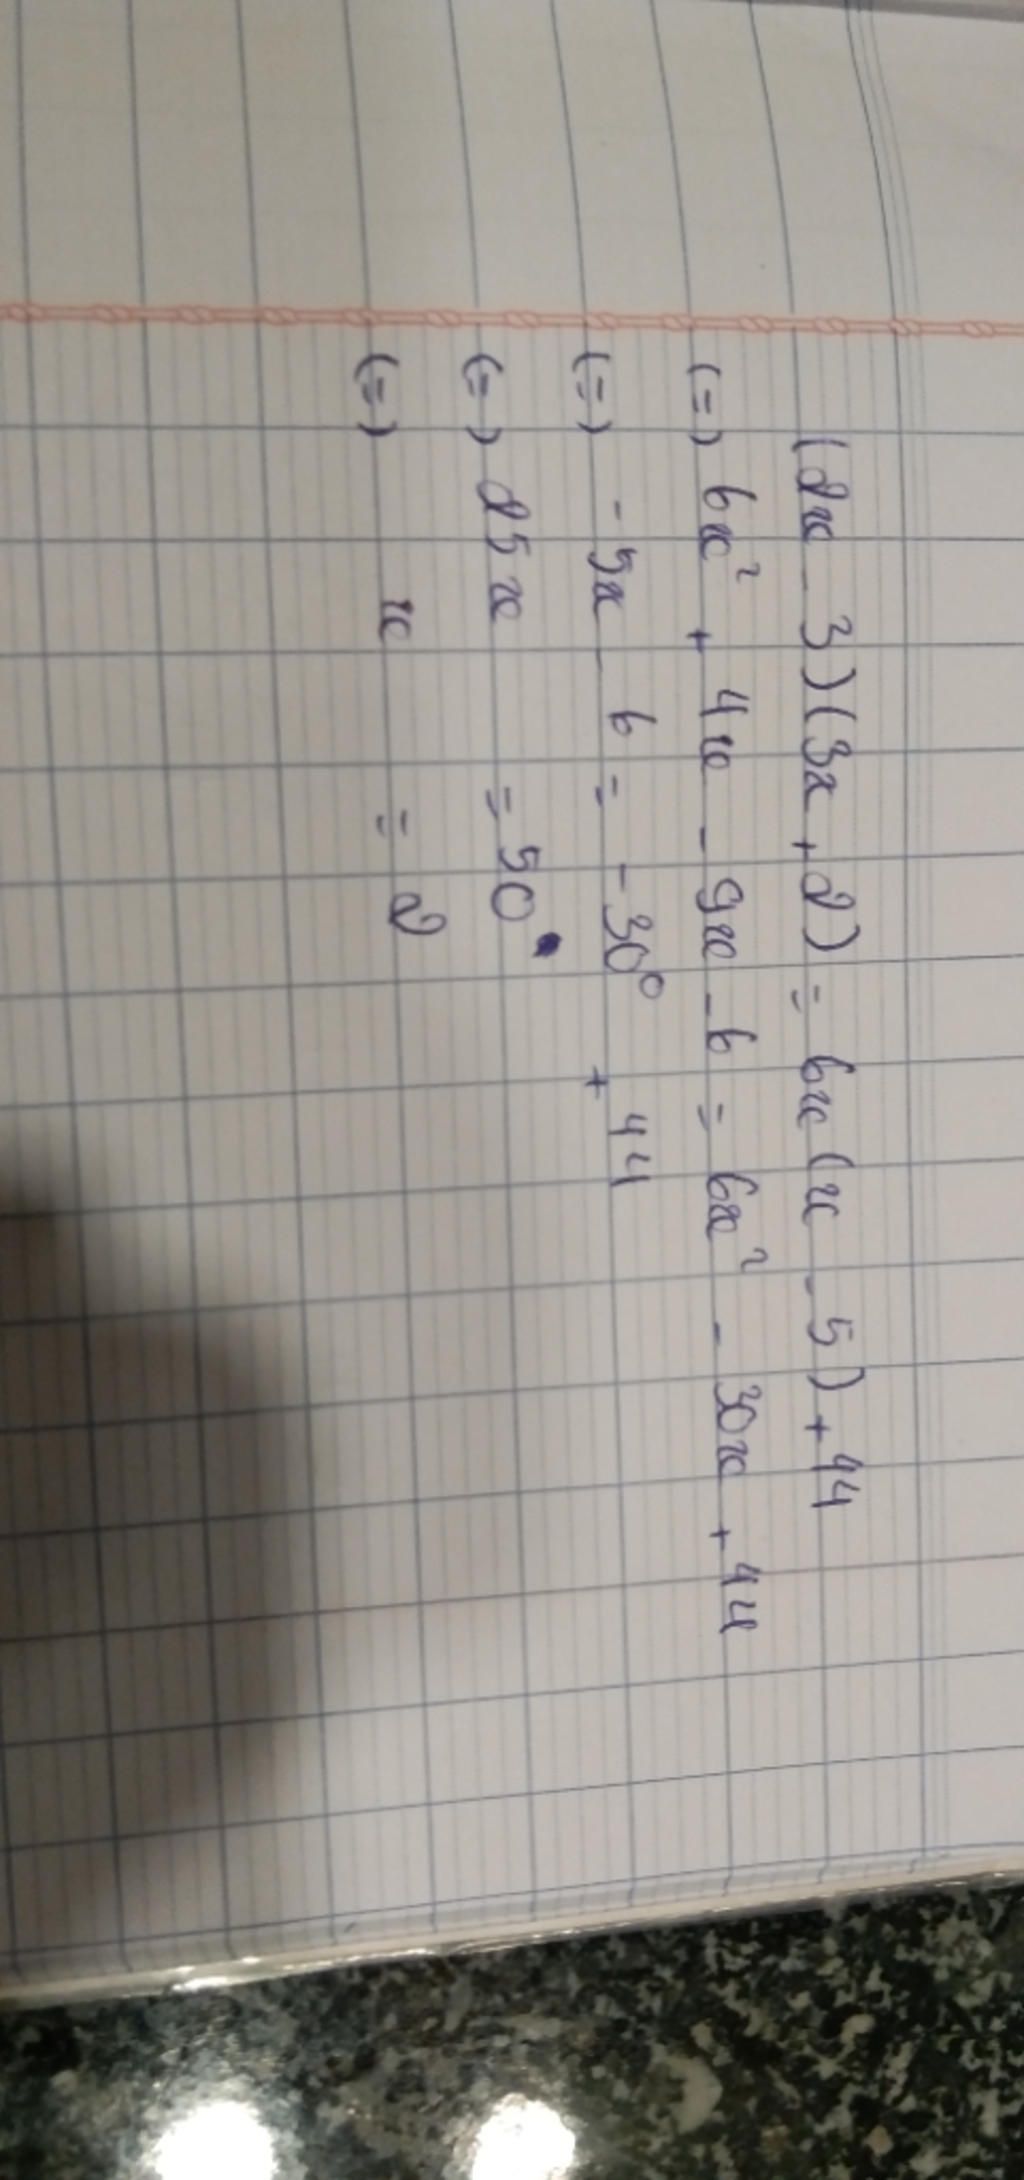 (2x - 3)(3x + 2) = 6x(x - 5) + 44
(=) 6x² + 4x - 9x - 6 = 6x² - 30x + 44
(=) -5x - 6 = -30° + 44
(=) 25x = 50
(=) x = 2